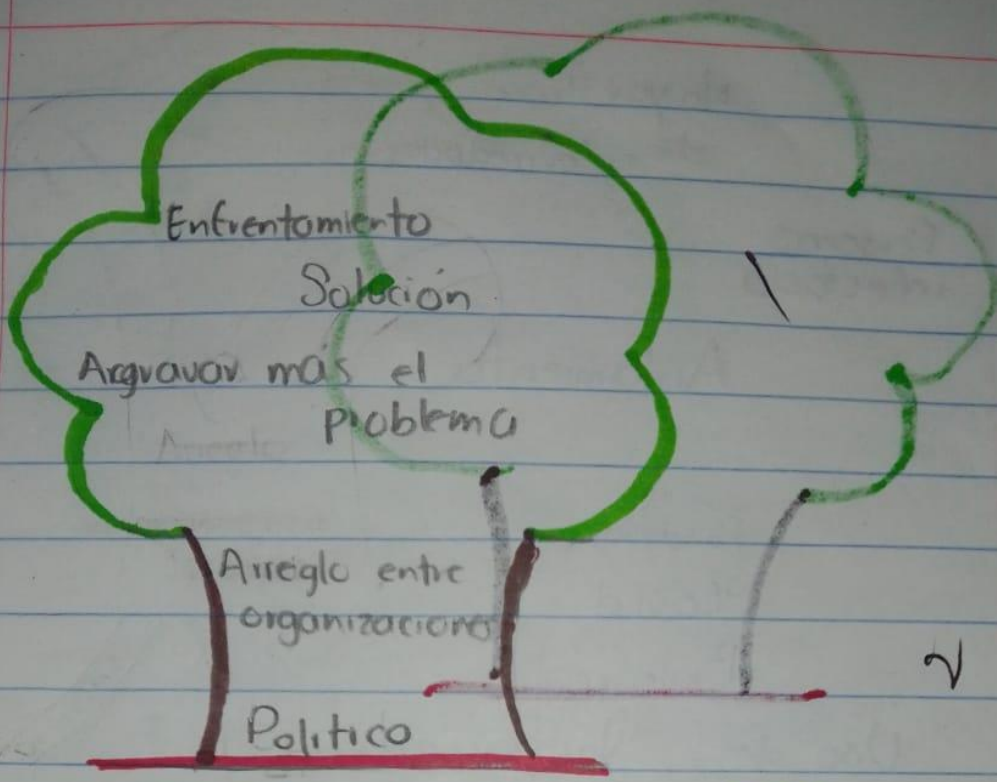 Enfrentamiento
Solución
Agravar más el
problema
Arreiglo entre
organizaciones
Politico
2